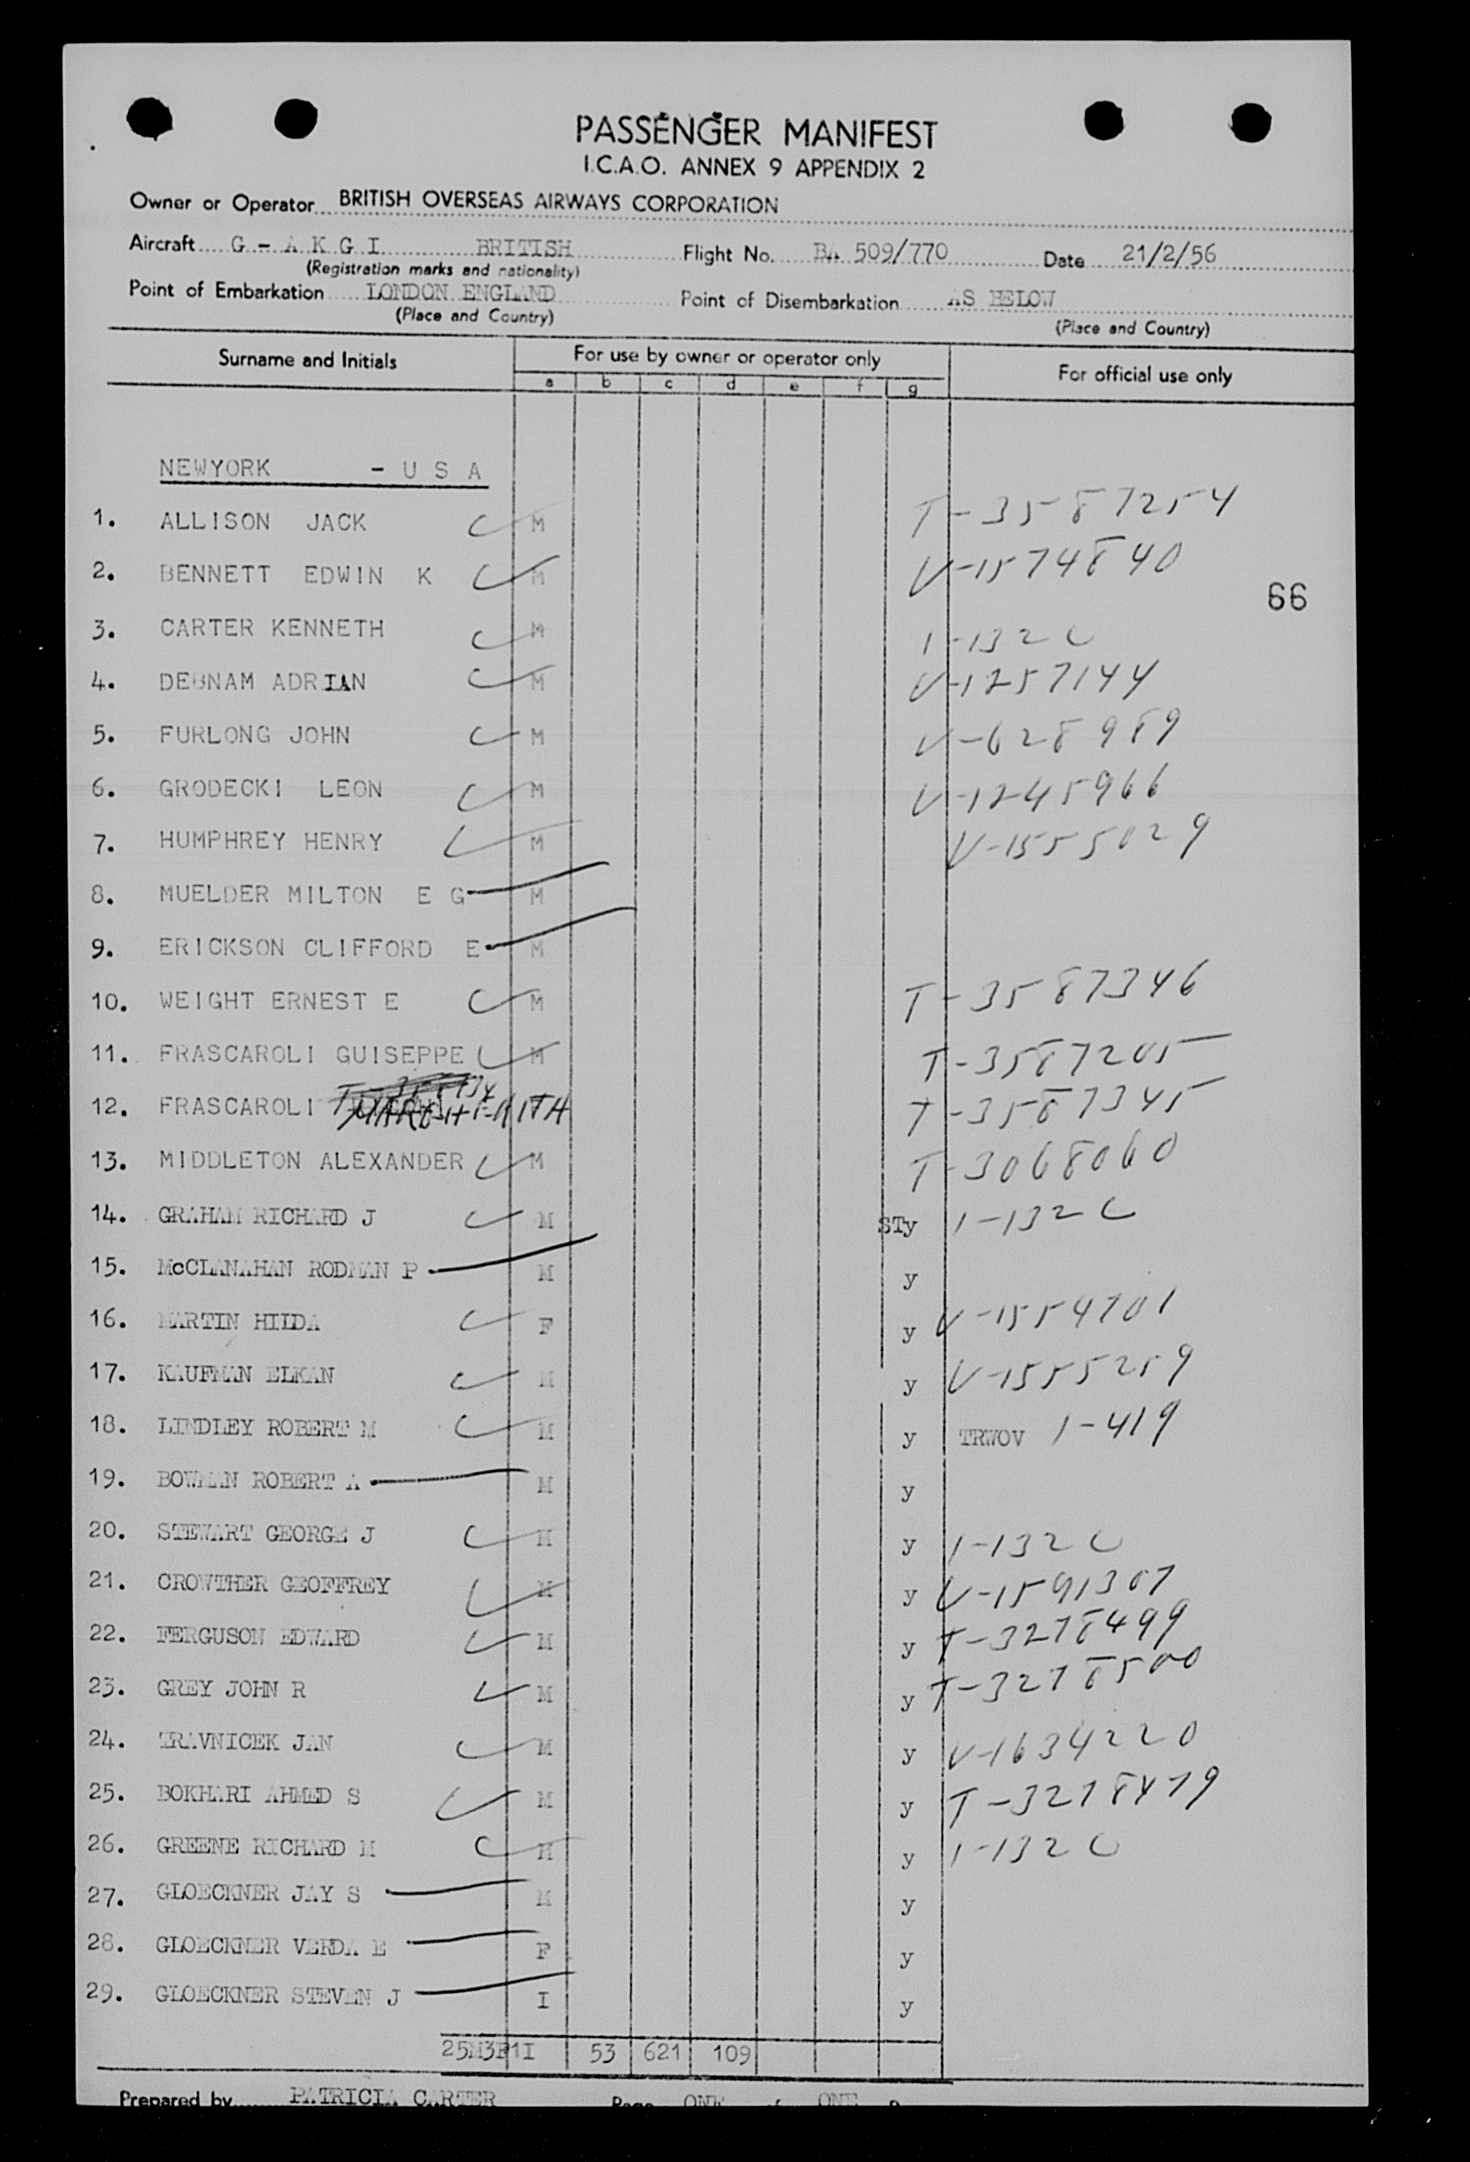 PASSENGER MANIFEST
I.C.A.O. ANNEX 9 APPENDIX 2
Owner or Operator BRITISH OVERSEAS AIRWAYS CORPORATION
Aircraft G - A K G I BRITISH Flight No. BA 509/770 Date 21/2/56
(Registration marks and nationality)
Point of Embarkation LONDON ENGLAND Point of Disembarkation AS BELOW
(Place and Country) (Place and Country)
Surname and Initials For use by owner or operator only For official use only
a b c d e f g
NEWYORK - U S A
1. ALLISON JACK M T-3587254
2. BENNETT EDWIN K M V-1574840
66
3. CARTER KENNETH M 1-132C
4. DEBNAM ADRIAN M V-1257144
5. FURLONG JOHN M V-628989
6. GRODECKI LEON M V-1245966
7. HUMPHREY HENRY M V-1555029
8. MUELDER MILTON E G M
9. ERICKSON CLIFFORD E M
10. WEIGHT ERNEST E M T-3587346
11. FRASCAROLI GUISEPPE M T-3587205
12. FRASCAROLI T-3587345
13. MIDDLETON ALEXANDER M T-3068060
14. GRAHAM RICHARD J M STy 1-132C
15. McCLANAHAN RODMAN P M y
16. MARTIN HILDA F y V-1554701
17. KAUFMAN ELKAN M y V-1555259
18. LINDLEY ROBERT M M y TRWOV 1-419
19. BOWMAN ROBERT A M y
20. STEWART GEORGE J M y 1-132C
21. CROWTHER GEOFFREY M y V-1591307
22. FERGUSON EDWARD M y T-3278499
23. GREY JOHN R M y T-3278500
24. TRAVNICEK JAN M y V-1634220
25. BOKHARI AHMED S M y T-3278479
26. GREENE RICHARD M M y 1-132C
27. GLOECKNER JAY S M y
28. GLOECKNER VERDA E F y
29. GLOECKNER STEVEN J I y
25M3F1I 53 621 109
Prepared by PATRICIA CARTER Page ONE of ONE